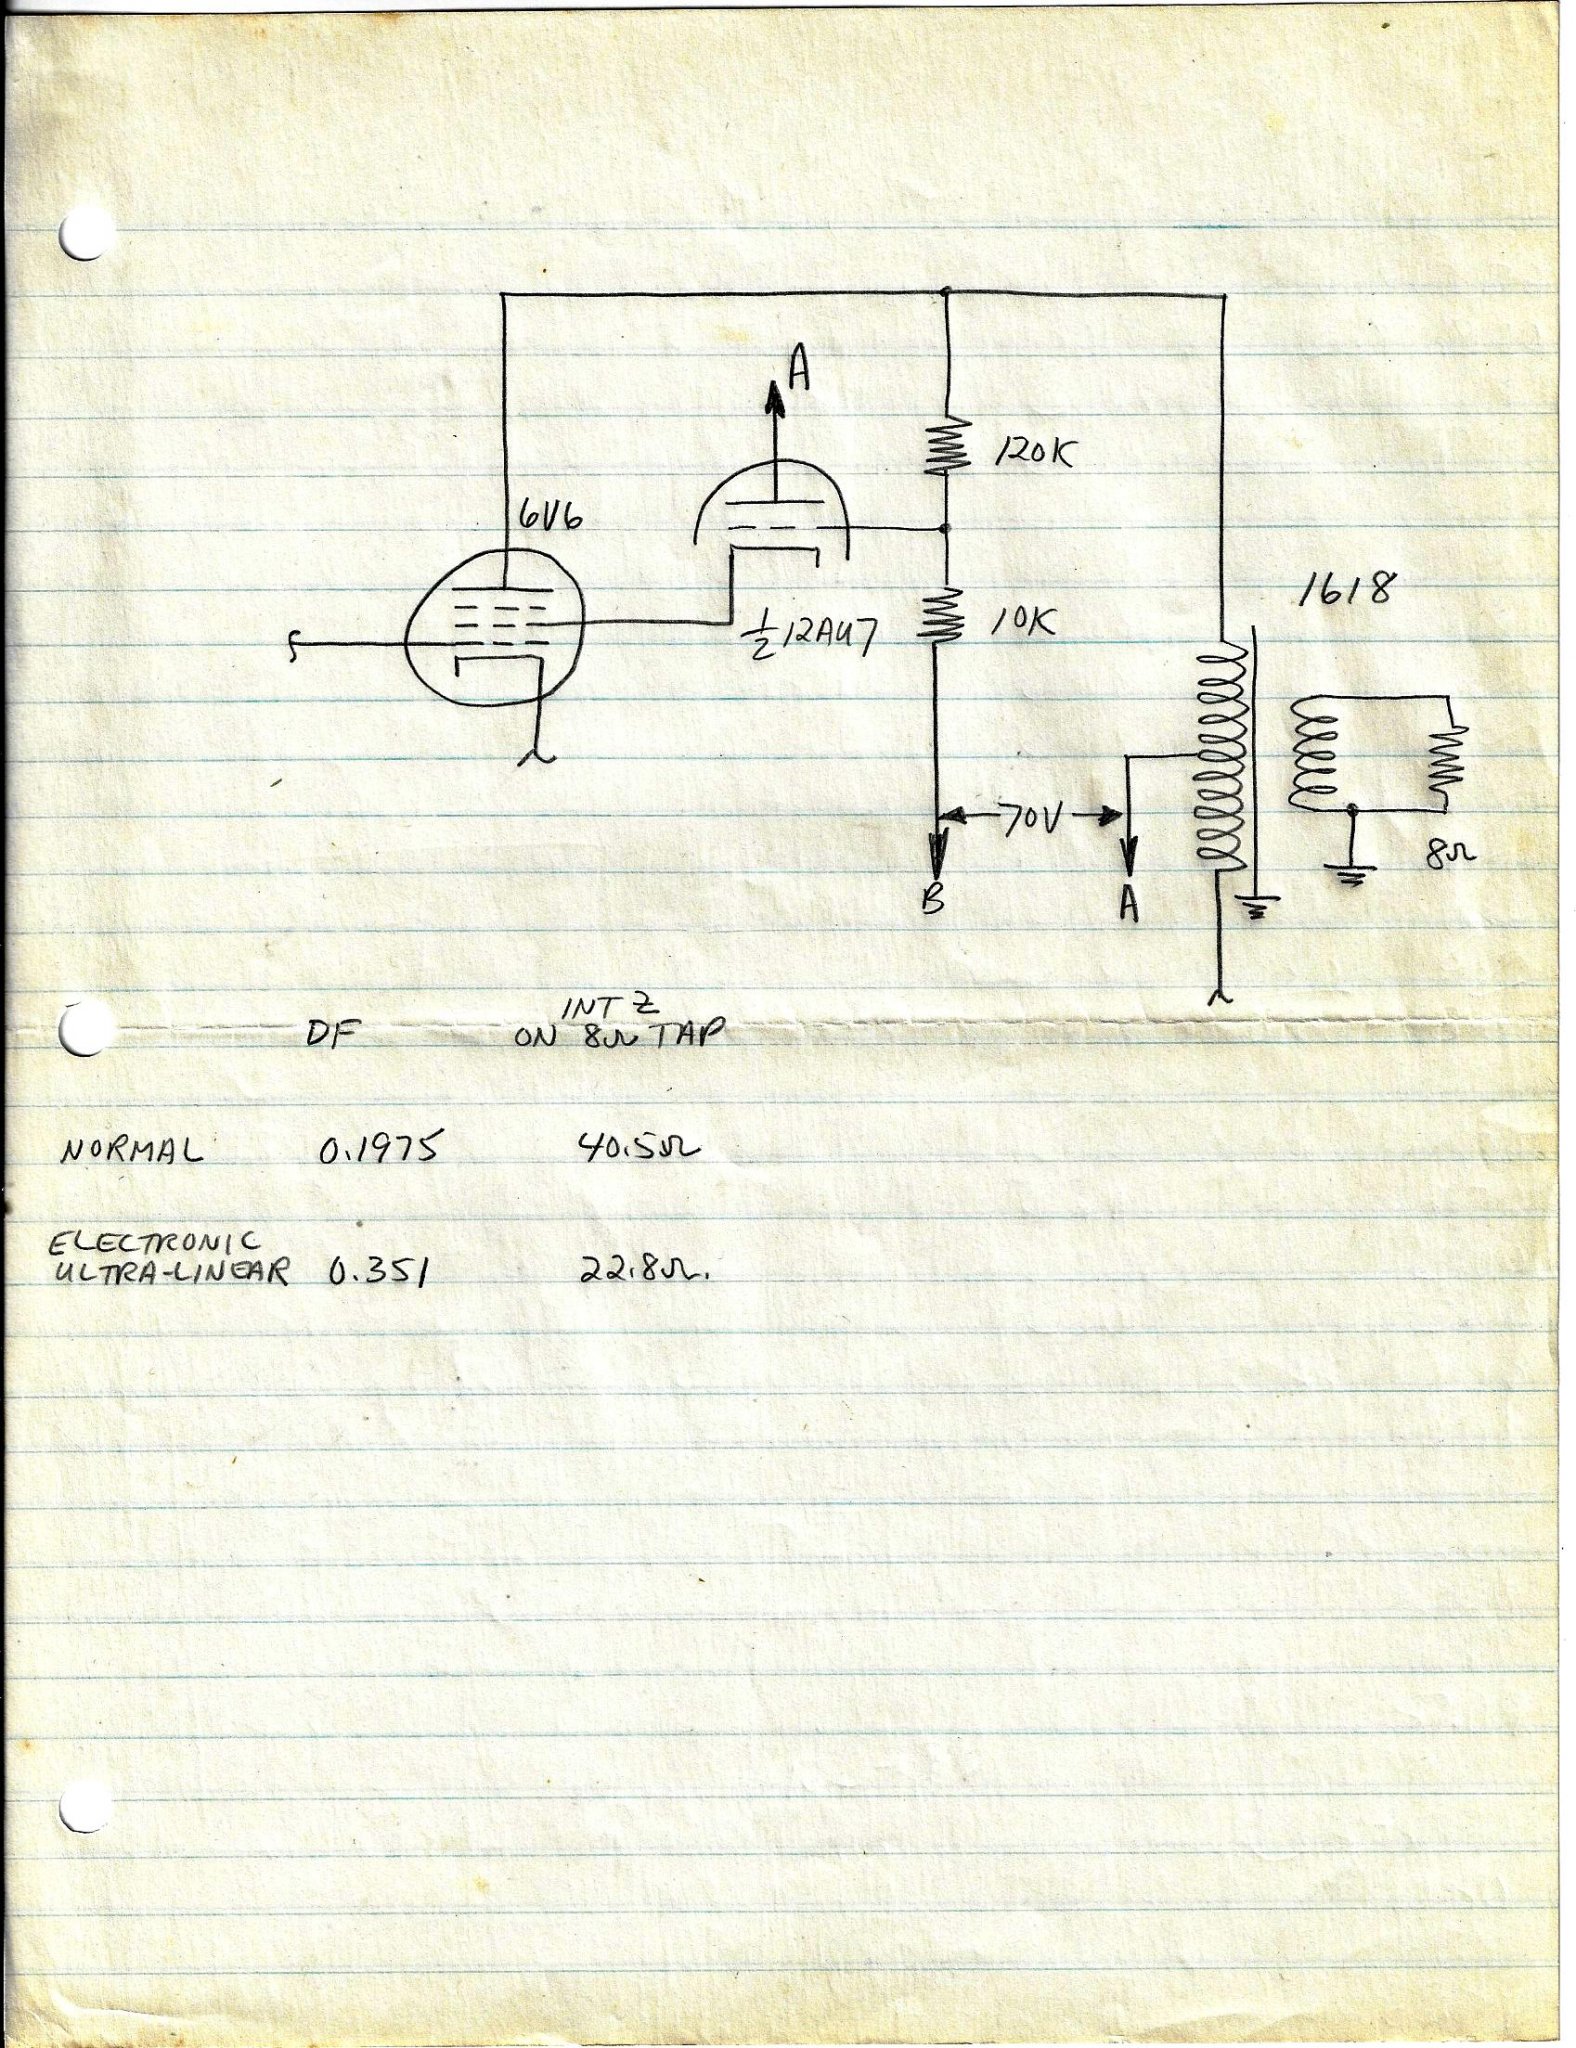 A
120K
6V6
½ 12AU7
10K
1618
70V
8Ω
B
A
DF
INT Z
ON 8Ω TAP
NORMAL 0.1975 40.5Ω
ELECTRONIC
ULTRA-LINEAR 0.351 22.8Ω.